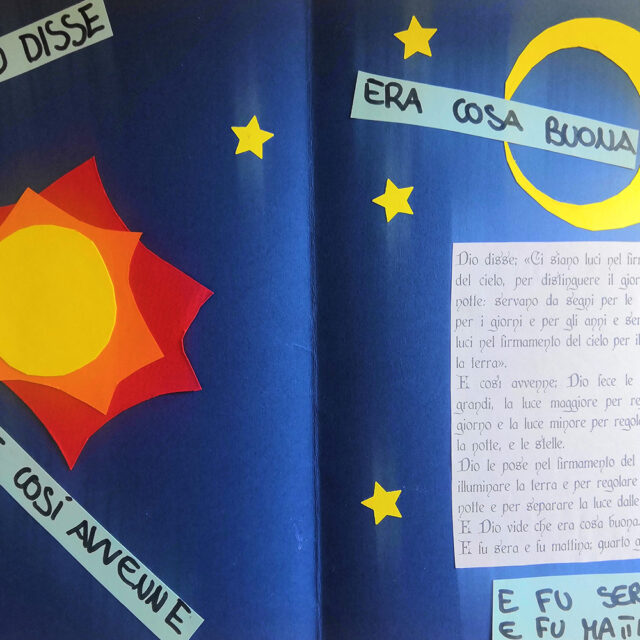 DISSE
E COSÍ AVVENNE
ERA COSA BUONA
Dio disse: «Ci siano luci nel
del cielo, per distinguere il
notte: servano da segni per le
per i giorni e per gli anni e
luci nel firmamento del cielo per
la terra».
E così avvenne: Dio fece le
grandi, la luce maggiore per
giorno e la luce minore per
la notte, e le stelle.
Dio le pose nel firmamento del
illuminare la terra e per regolare
notte e per separare la luce dalle
E Dio vide che era cosa buona.
E fu sera e fu mattina: quarto
E FU
E FU